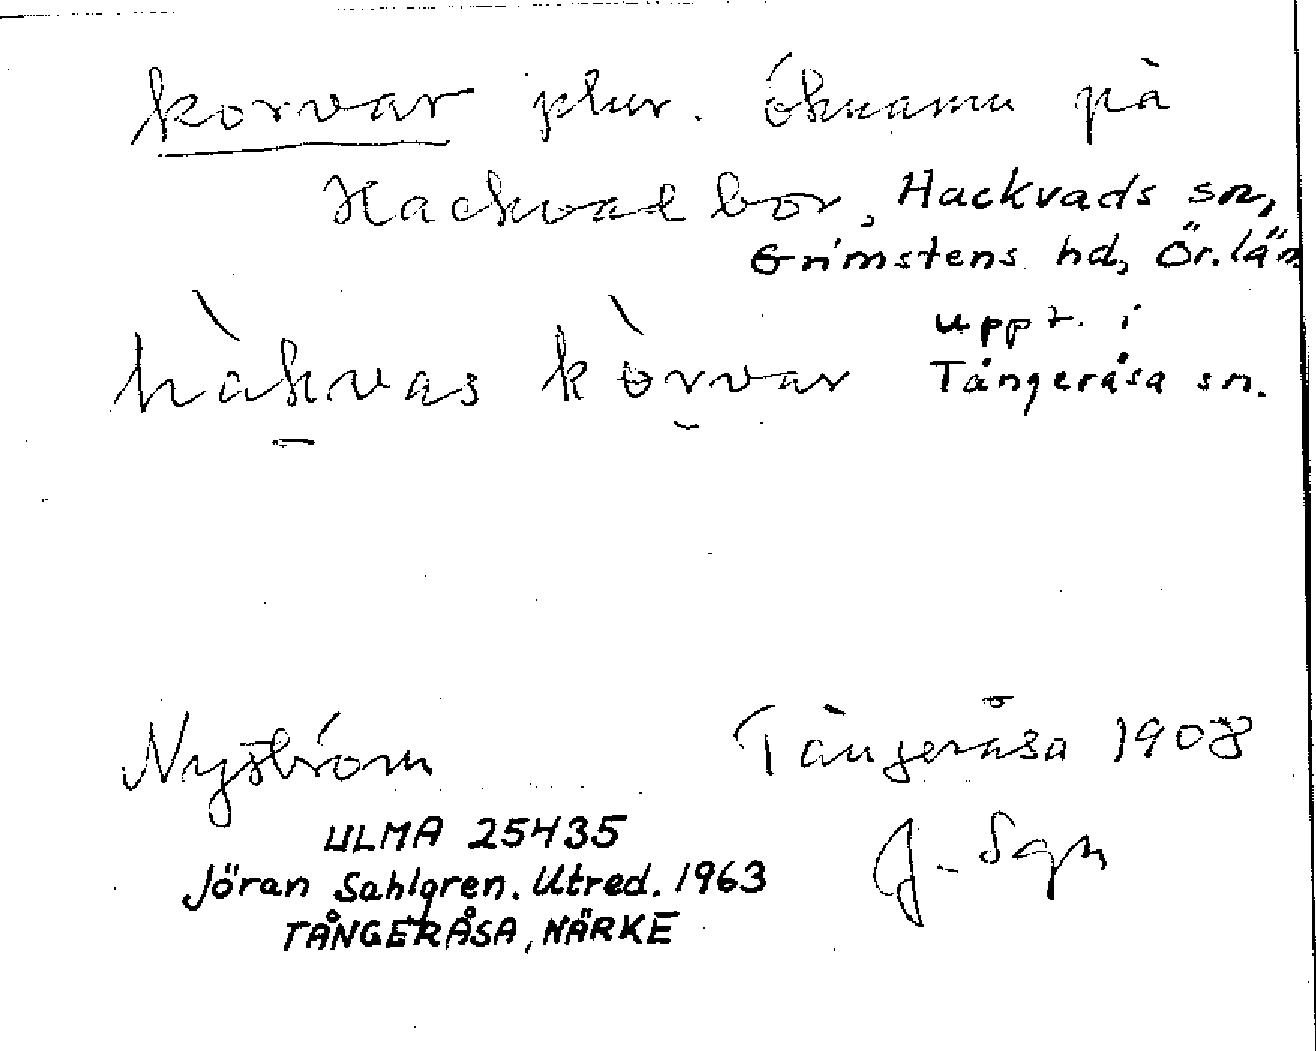 korvar plur. Öknamn på
Hackvadbor, Hackvads sn,
Grimstens hd, Ör. län
hàkvas kòrvar
uppt. i
Tångeråsa sn.
Nyström
Tångeråsa 1908
J. Sgn
ULMA 25435
Jöran Sahlgren. Utred. 1963
TÅNGERÅSA, NÄRKE